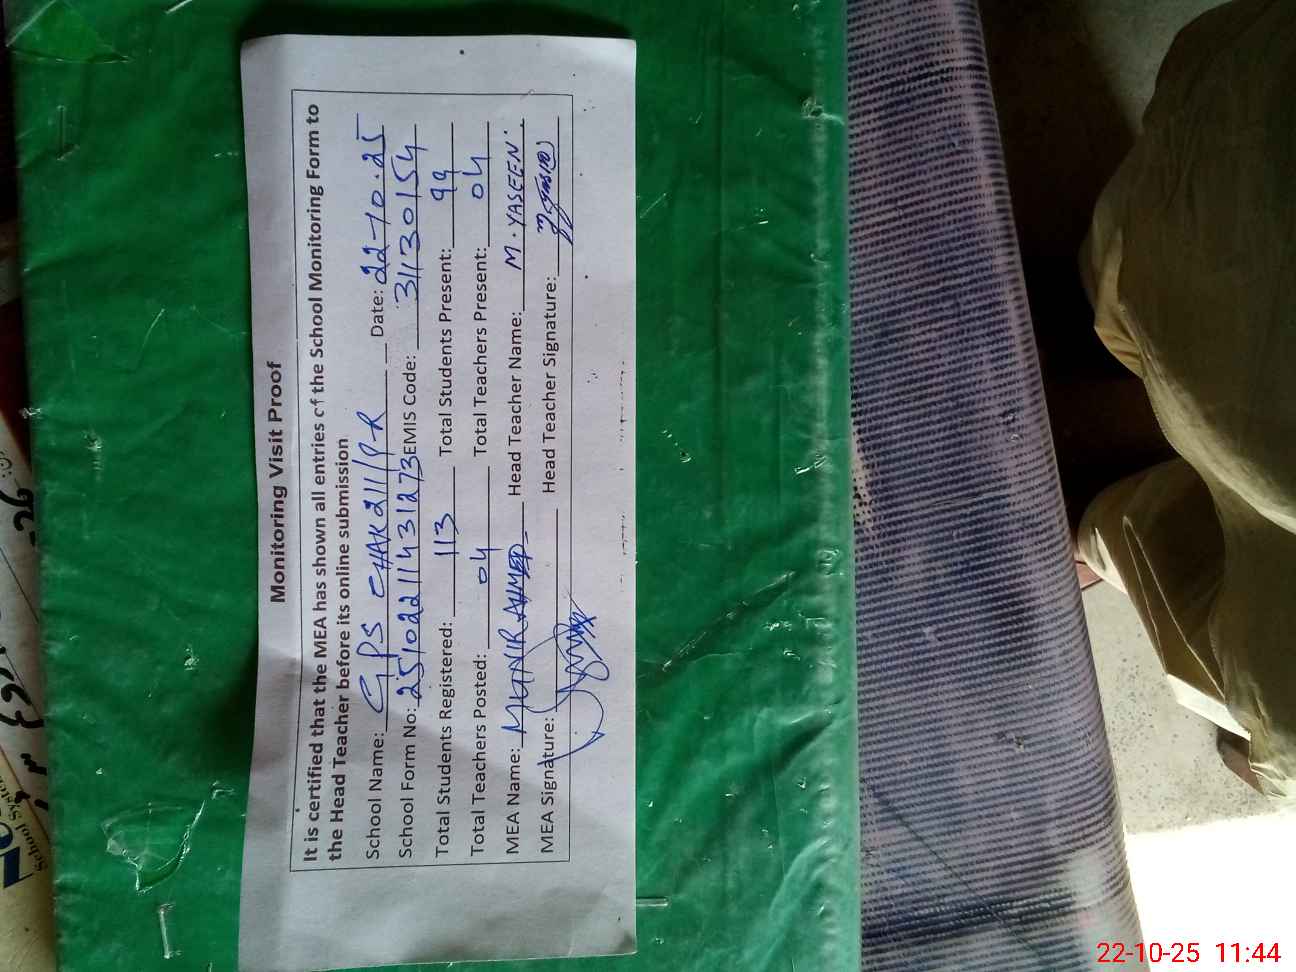 Monitoring Visit Proof
It is certified that the MEA has shown all entries of the School Monitoring Form to
the Head Teacher before its online submission
School Name: GPS CHAK 211/P-R Date: 22-10-25
School Form No: 2510221143 1273 EMIS Code: 31130154
Total Students Registered: 113 Total Students Present: 99
Total Teachers Posted: 04 Total Teachers Present: 04
MEA Name: MUNIR AHMED Head Teacher Name: M. YASEEN
MEA Signature: Head Teacher Signature:
School System
22-10-25 11:44